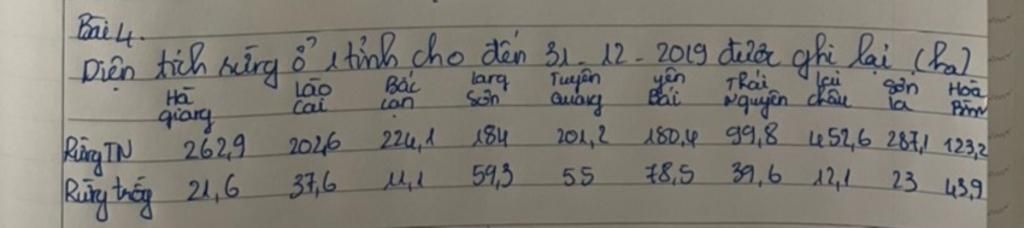 Bài 4.
Diện tích rừng ở 1 tỉnh cho đến 31-12-2019 được ghi lại (ha)
Hà giang Lào cai Bắc cạn lạng Sơn Tuyên Quang yên Bái Thái Nguyên lai châu sơn la Hoà Bình
Rừng TN 262,9 202,6 224,1 184 201,2 180,4 99,8 452,6 287,1 123,2
Rừng trồg 21,6 37,6 11,1 59,3 55 78,5 39,6 12,1 23 43,9